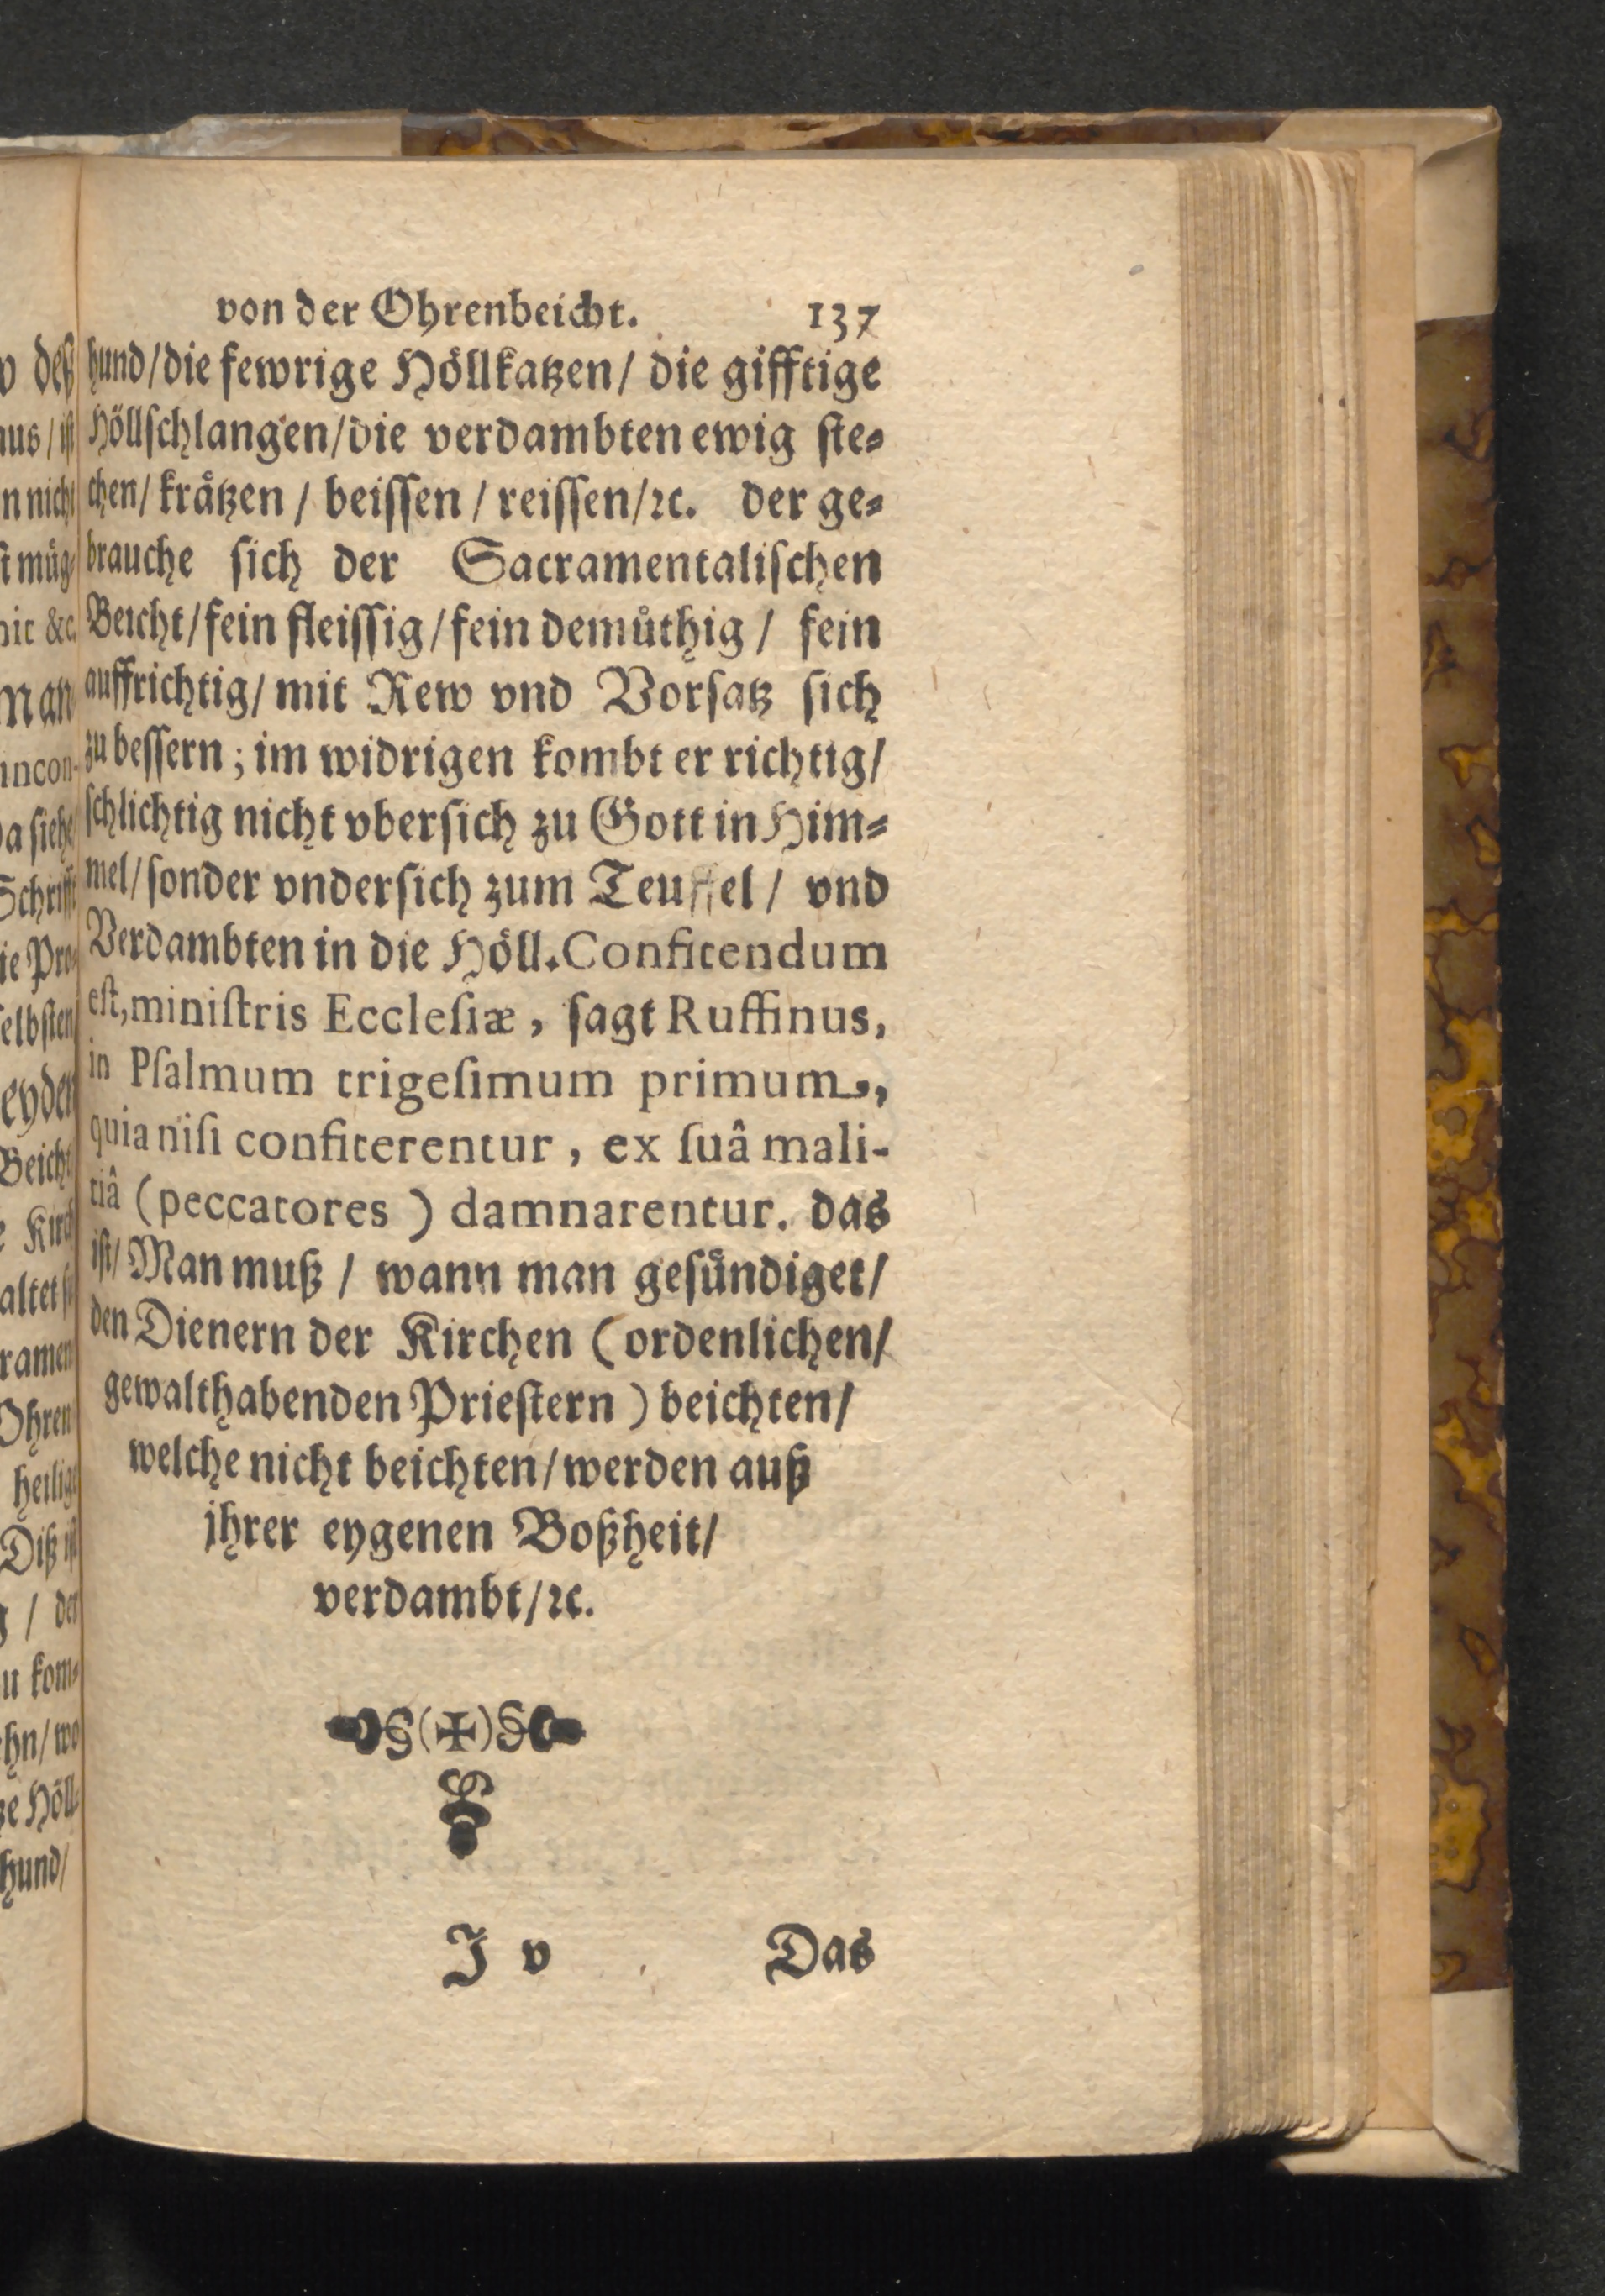 von der Ohrenbeicht. 137
hund/die fewrige Höllkatzen/ die gifftige
Höllschlangen/die verdambten ewig ste-
chen/ krätzen / beissen / reissen/ꝛc. der ge-
brauche sich der Sacramentalischen
Beicht/fein fleissig/fein demüthig / fein
auffrichtig/ mit Rew vnd Vorsatz sich
zu bessern; im widrigen kombt er richtig/
schlichtig nicht vbersich zu Gott in Him-
mel/sonder vndersich zum Teuffel / vnd
Verdambten in die Höll. Confitendum
est, ministris Ecclesiæ, sagt Ruffinus,
in Psalmum trigesimum primum,
quia nisi confiterentur, ex suâ mali-
tiâ (peccatores) damnarentur. das
ist/ Man muß / wann man gesündiget/
den Dienern der Kirchen (ordenlichen/
gewalthabenden Priestern) beichten/
welche nicht beichten/werden auß
jhrer eygenen Boßheit/
verdambt/ꝛc.
J v Das